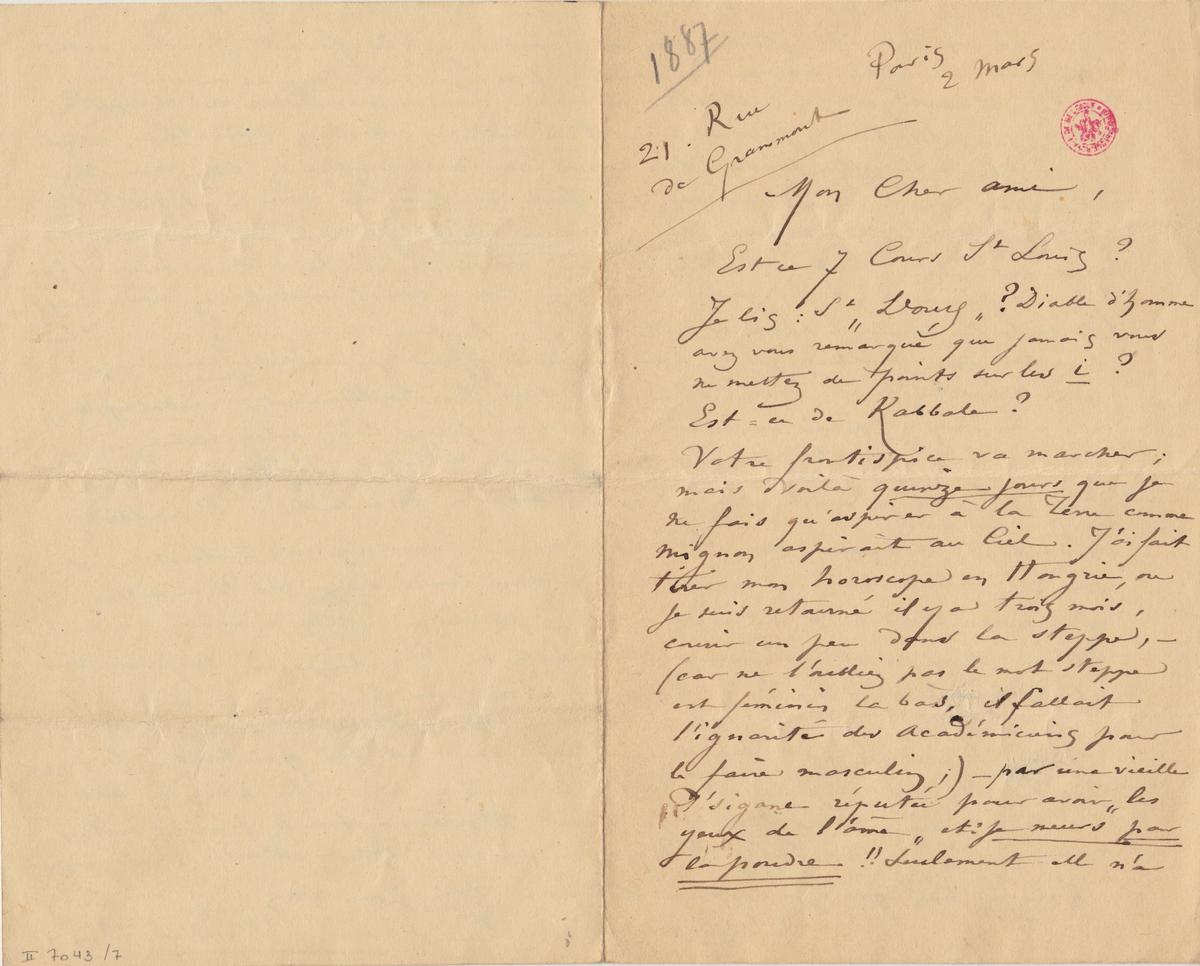 1887
Paris
2 Mars
21. Rue
de Grammont
Mon Cher ami,
Est ce 7 Cours St Louis ?
Je lis : St „ Lvoug „ ? Diable d'homme
avez vous remarqué que jamais vous
ne mettez de points sur les i ?
Est=ce de Kabbale ?
Votre frontispice va marcher ;
mais voilà quinze jours que je
ne fais qu'aspirer à la Terre comme
mignon aspirait au Ciel. J'ai fait
tirer mon horoscope en Hongrie, ou
je suis retourné il y a trois mois,
courir un peu dans la steppe, –
(car ne l'oubliez pas le mot steppe
est féminin la bas, il fallait
l'ignorité des Académiciens pour
le faire masculin ;) – par une vieille
Tsigane réputée pour avoir „ les
yeux de l'âme „ et je meurs par
la poudre !! Seulement elle n'a
II 7043 /7